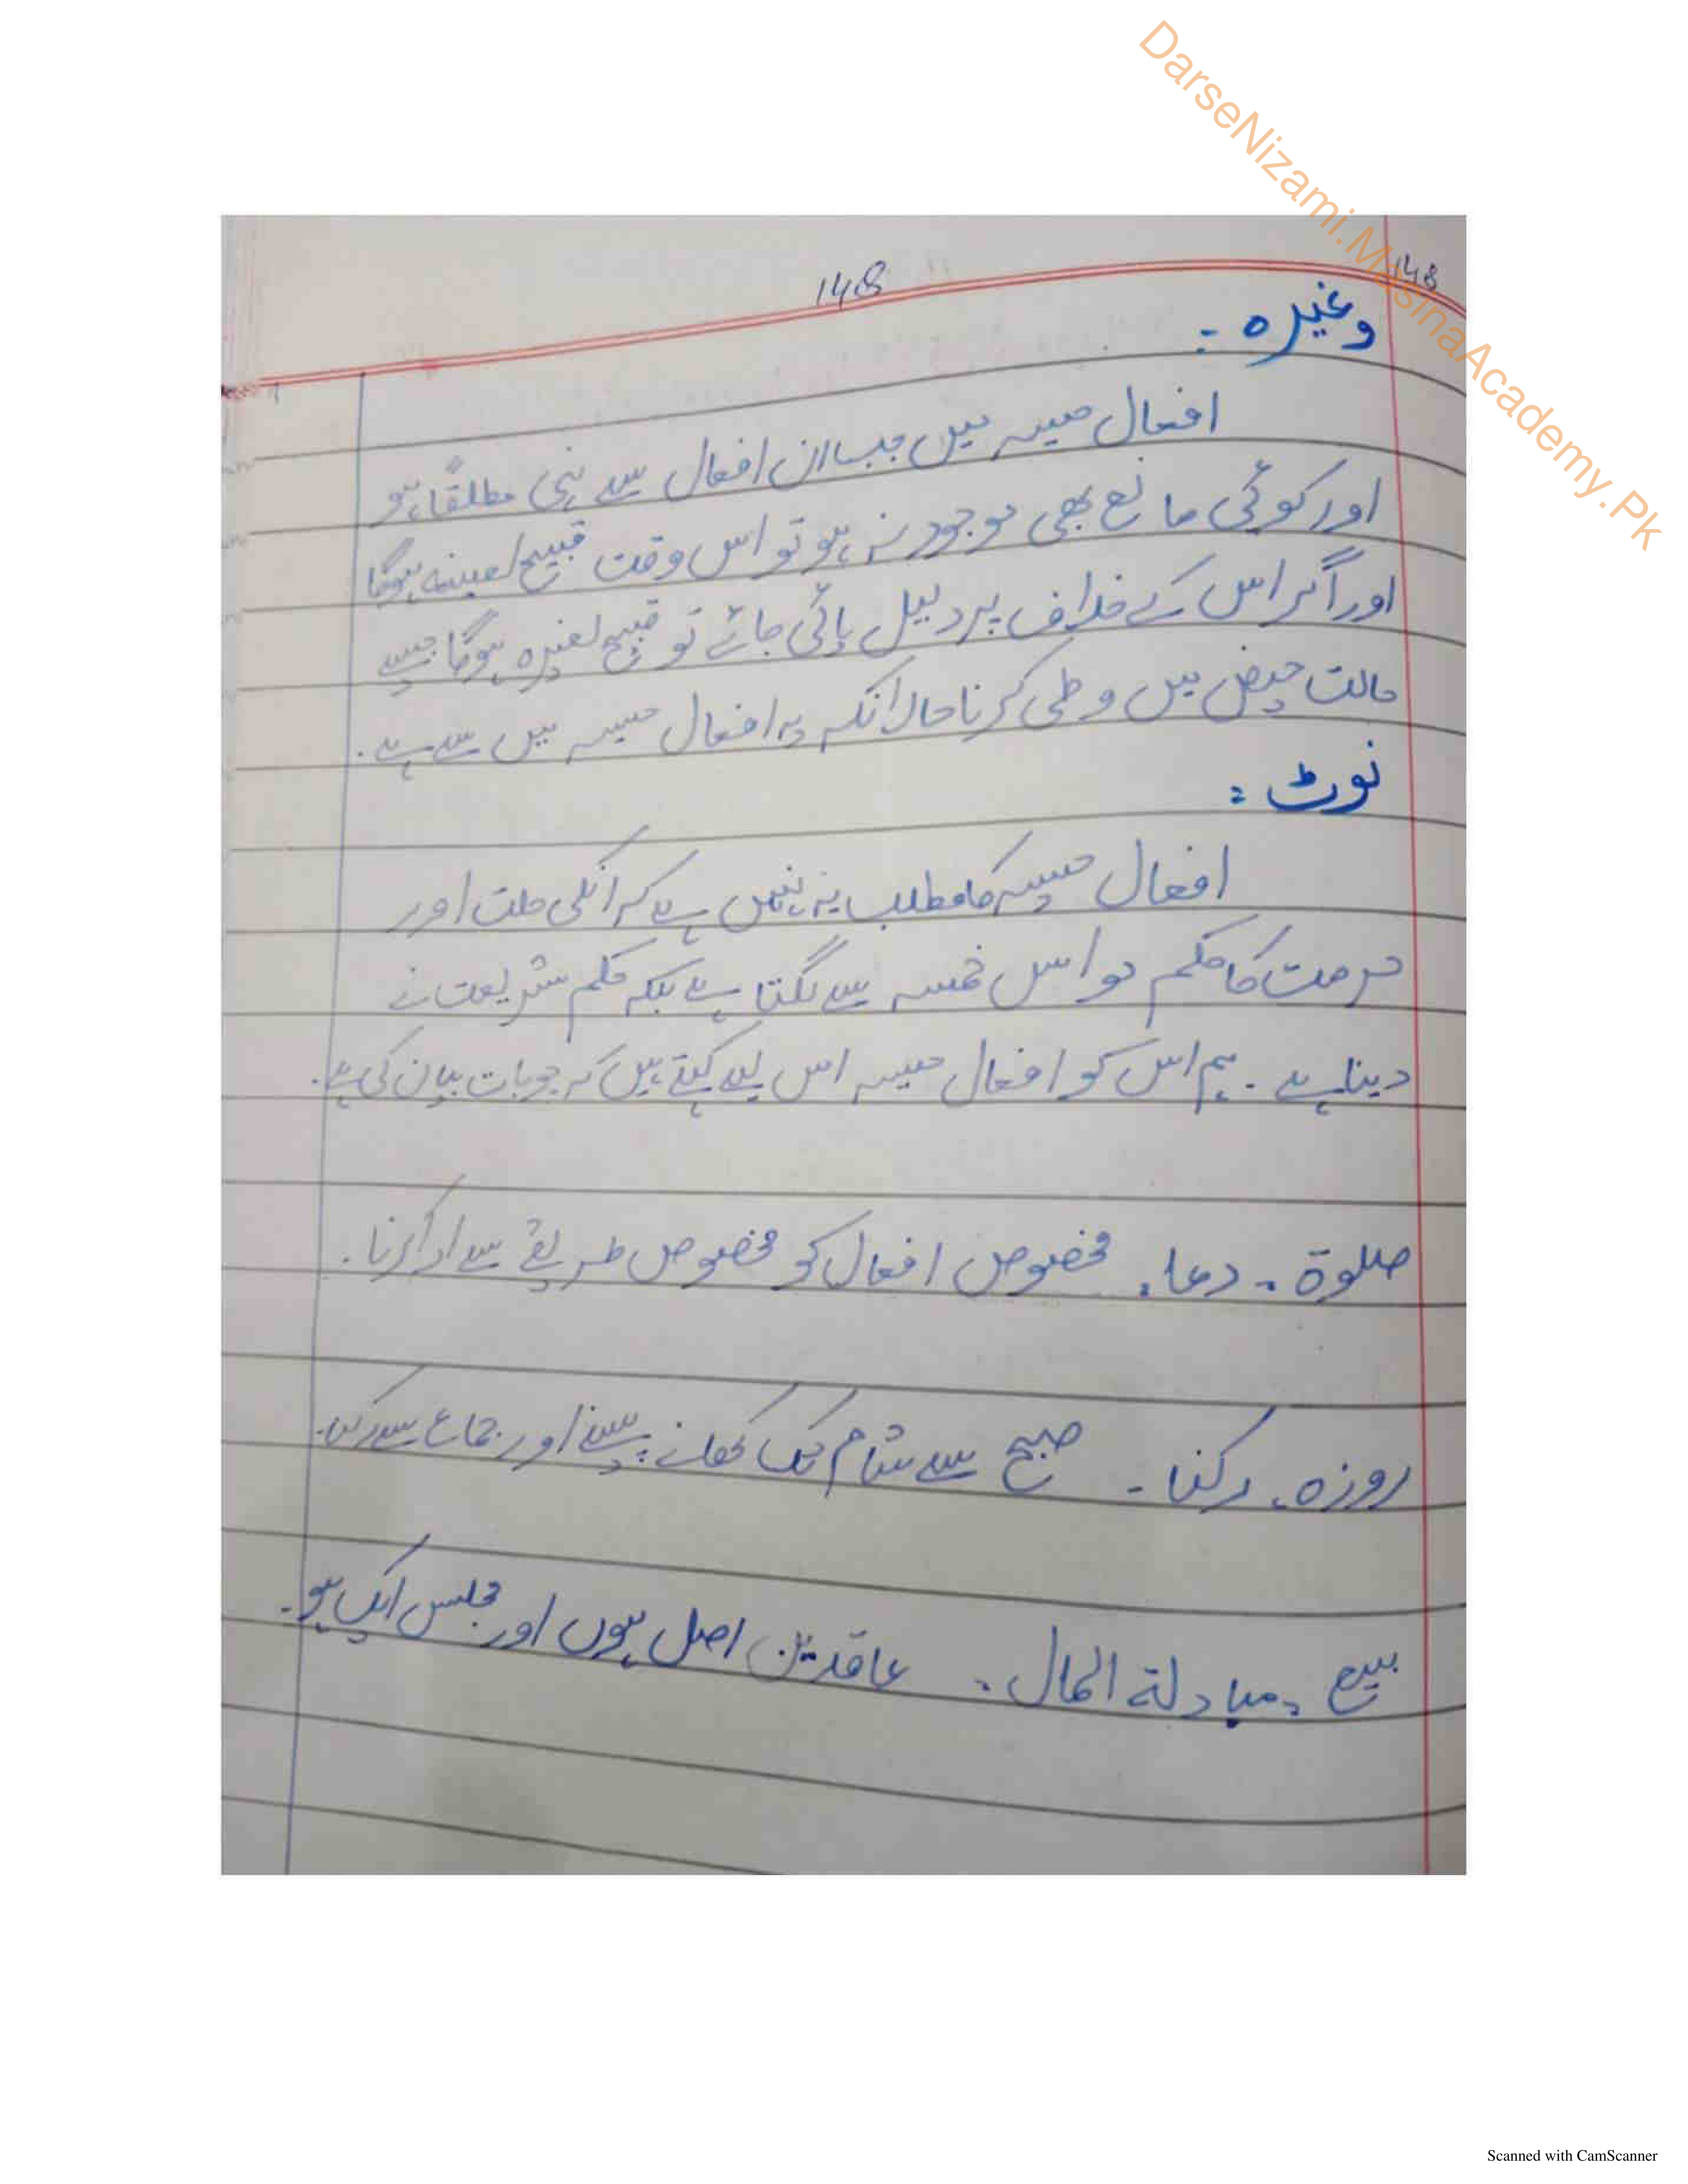 DarseNizami.MadinaAcademy.Pk
148
148
وغیرہ :-
افعال حسیہ میں جب ان افعال سے نہی مطلقاً ہو
اور کوئی مانع بھی موجود نہ ہو تو اس وقت قبیح لعینہ ہوگا
اور اگر اس کے خلاف پر دلیل پائی جائے تو قبیح لغیرہ ہوگا جیسے
حالت حیض میں وطی کرنا حالانکہ یہ افعال حسیہ میں سے ہے۔
نوٹ :
افعال حسیہ کا مطلب یہ نہیں ہے کہ انکی حلت اور
حرمت کا حکم حواس خمسہ سے لگتا ہے بلکہ حکم شریعت نے
دینا ہے ۔ ہم اس کو افعال حسیہ اس لیے کہتے ہیں کہ جو بات بیان کی ہے۔
صلوۃ ۔ دعا ۔ مخصوص افعال کو مخصوص طریقے سے ادا کرنا ۔
روزہ ۔ رکنا ۔ صبح سے شام تک کھانے پینے اور جماع سے رکنا۔
بیع ۔ مبادلۃ المال ۔ عاقدین اصل ہوں اور مجلس ایک ہو ۔
Scanned with CamScanner